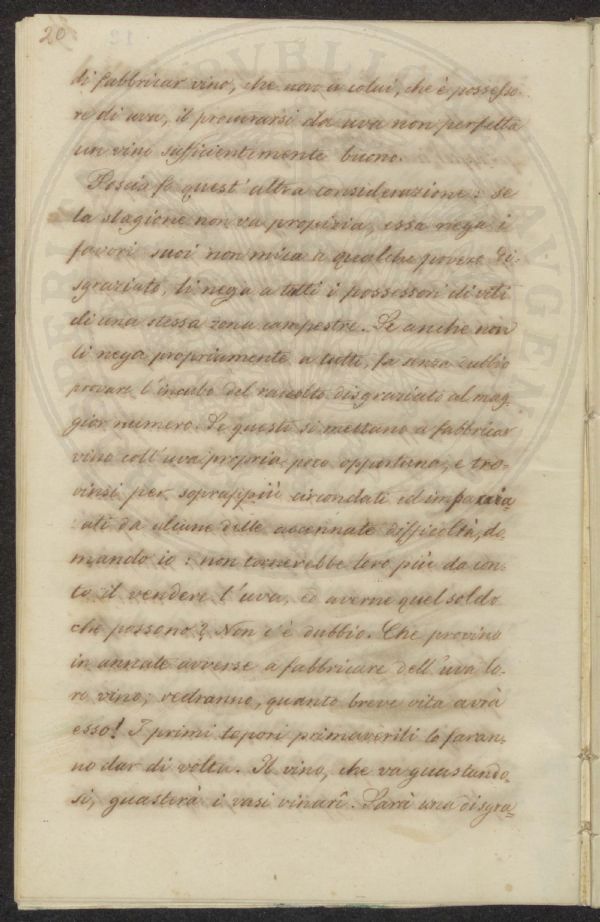 20
di fabbricar vino, che non a colui, che è possesso-
re di uva, il procurarsi da uva non perfetta
un vino sufficientemente buono.
Poscia fo quest'altra considerazione: se
la stagione non va propizia, essa nega i
favori suoi non mica a qualche povero di-
sgraziato, li nega a tutti i possessori di viti
di una stessa zona campestre. Se anche non
li nega propriamente a tutti, fa senza dubbio
provare l'incubo del raccolto disgraziato al mag-
gior numero. Se questi si mettano a fabbricar
vino coll'uva propria, poco opportuna, e tro-
vinsi per soprappiù circondati ed impacci-
ati da alcune delle accennate difficoltà, do-
mando io: non tornerebbe loro più da con-
to il vendere l'uva, ed averne quel soldo
che possono? Non c'è dubbio. Che provino
in annate avverse a fabbricare dell'uva lo-
ro vino; vedranno, quanto breve vita avrà
esso! I primi tepori primaverili lo faran-
no dar di volta. Il vino, che va guastando-
si, guasterà i vasi vinarî. Sarà una disgra-